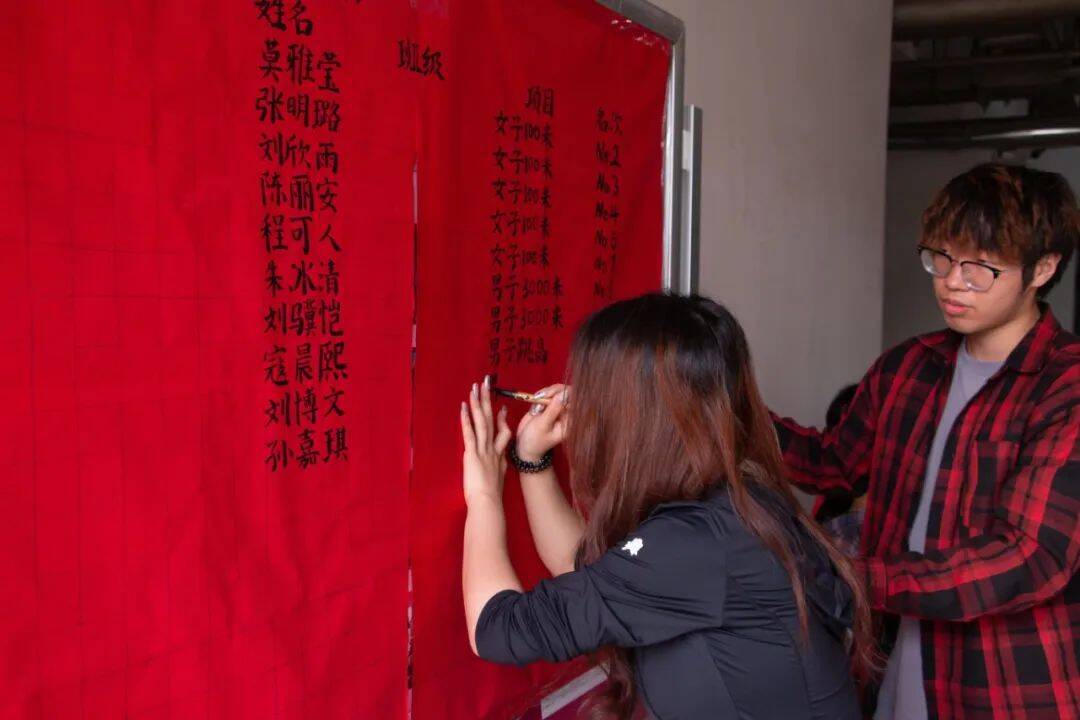 姓名
莫雅莹
张明璐
刘欣雨
陈丽安
程可人
朱冰清
刘骥恺
寇晨熙
刘博文
孙嘉琪
班级
项目
女子100米
女子100米
女子100米
女子100米
女子100米
男子3000米
男子3000米
男子跳高
名次
No2
No3
No4
No5